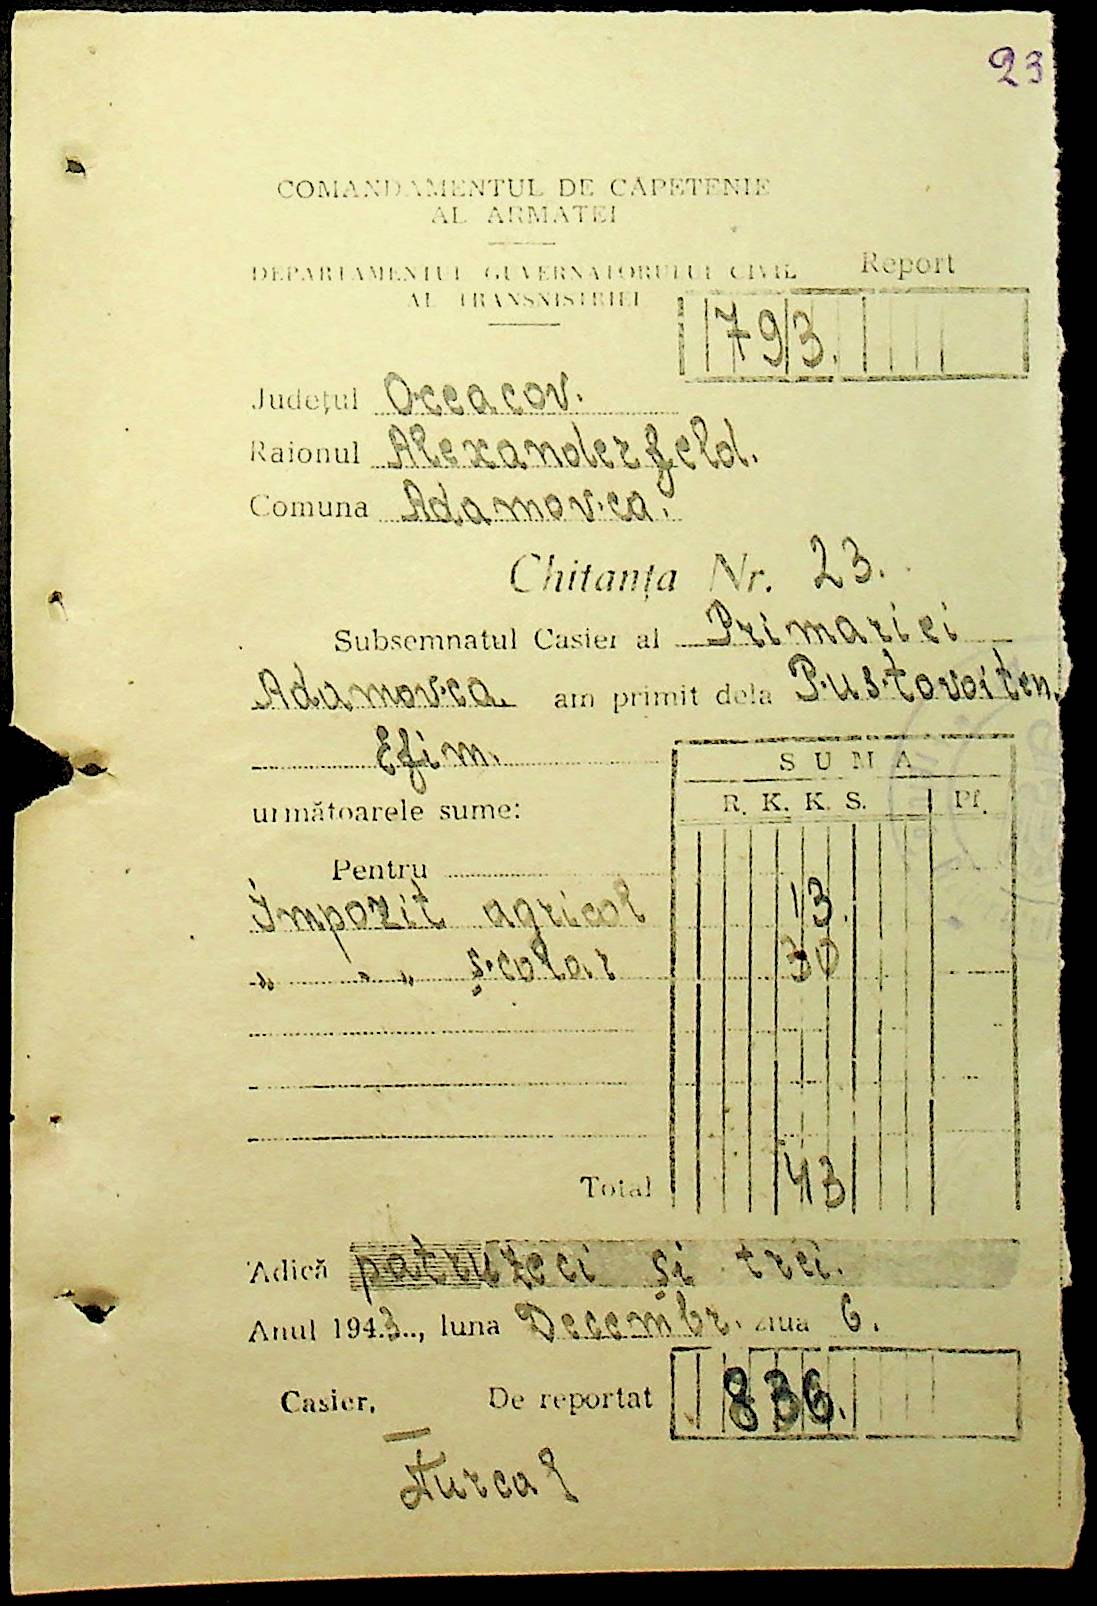 23
COMANDAMENTUL DE CĂPETENIE
AL ARMATEI
DEPARTAMENTUL GUVERNATORULUI CIVIL
AL TRANSNISTRIEI
Report
793.
Județul Oceacov.
Raionul Alexanderfeld.
Comuna Adamovca.
Chitanța Nr. 23.
Subsemnatul Casier al Primariei
Adamovca am primit dela Pustovoiten.
Efim.
SUMA
R. K. K. S. Pf.
următoarele sume:
Pentru
Impozit agricol 13.
" " " școlar 30
Total 43
Adică patruzeci și trei.
Anul 1943.., luna Decembr. ziua 6.
Casier, De reportat 836.